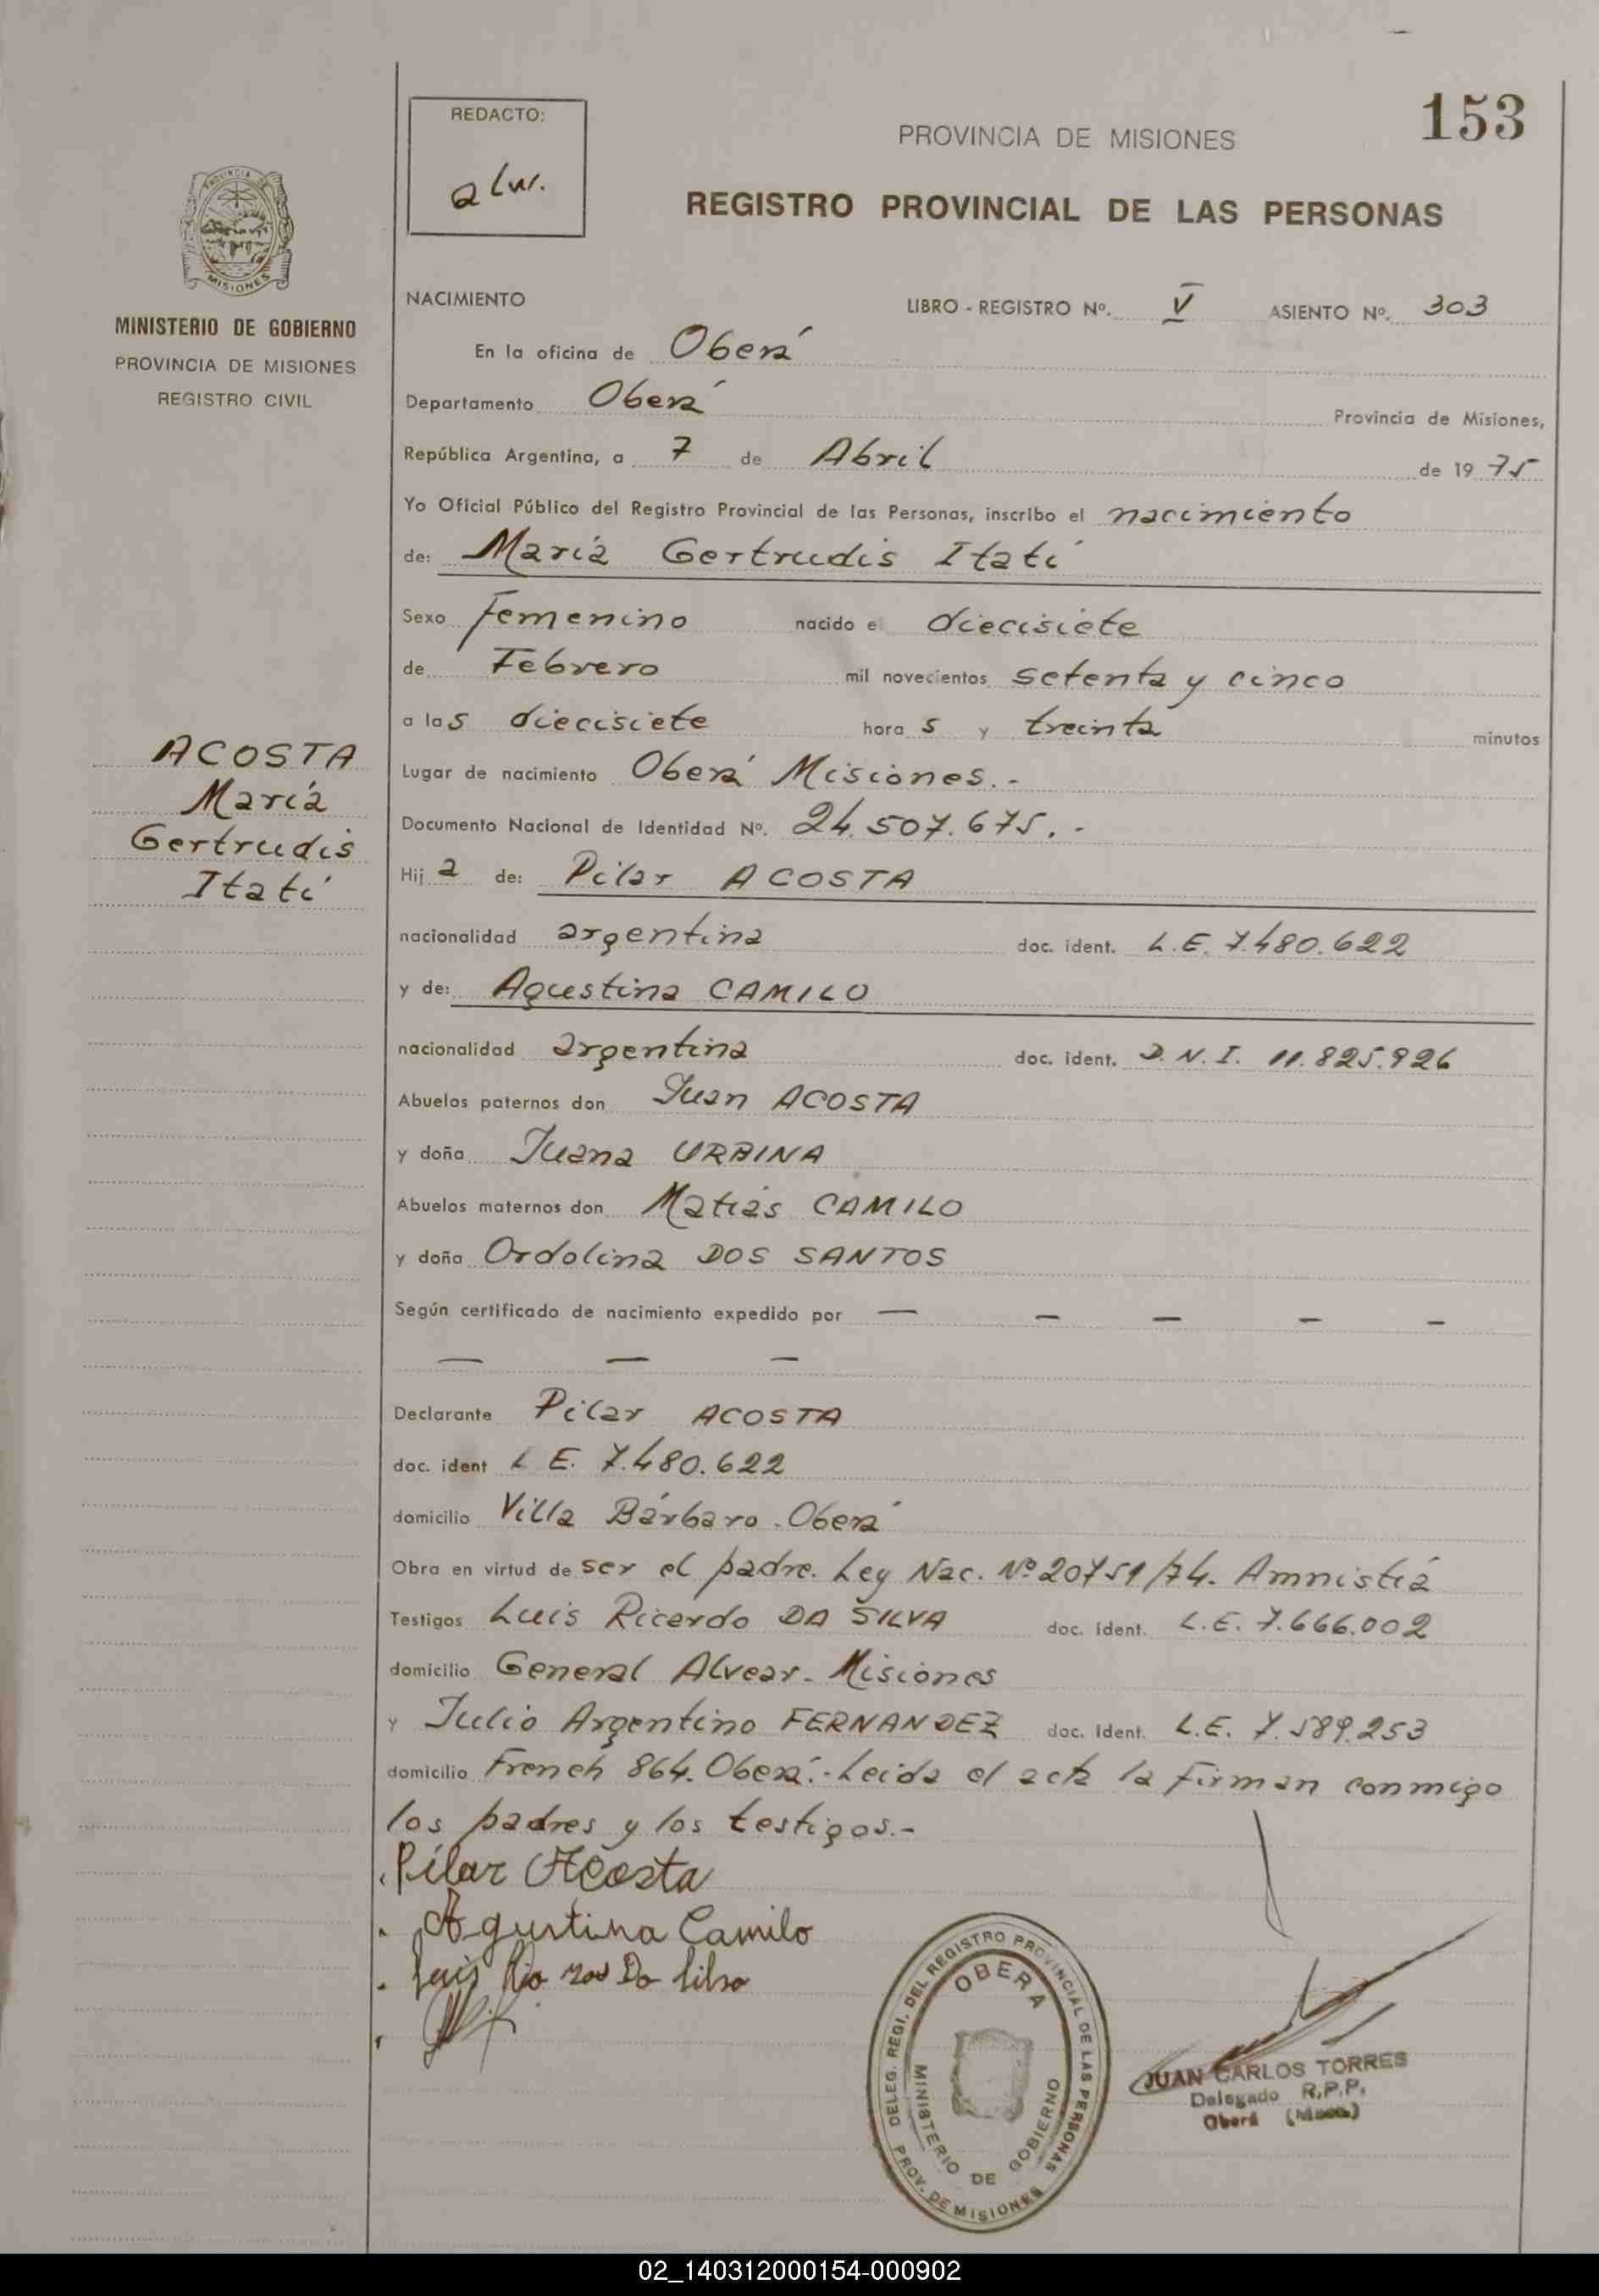 153
REDACTO:
PROVINCIA DE MISIONES
REGISTRO PROVINCIAL DE LAS PERSONAS
PROVINCIA DE
MISIONES
MINISTERIO DE GOBIERNO
PROVINCIA DE MISIONES
REGISTRO CIVIL
ACOSTA
María
Gertrudis
Itatí
NACIMIENTO LIBRO - REGISTRO Nº. V ASIENTO Nº. 303
En la oficina de Oberá
Departamento Oberá Provincia de Misiones,
República Argentina, a 7 de Abril de 1975
Yo Oficial Público del Registro Provincial de las Personas, inscribo el nacimiento
de: María Gertrudis Itatí
Sexo Femenino nacido el diecisiete
de Febrero mil novecientos setenta y cinco
a las diecisiete horas y treinta minutos
Lugar de nacimiento Oberá Misiones.-
Documento Nacional de Identidad Nº. 24.507.675.-
Hija de: Pilar ACOSTA
nacionalidad argentina doc. ident. L.E. 7.480.622
y de: Agustina CAMILO
nacionalidad argentina doc. ident. D.N.I. 11.825.926
Abuelos paternos don Juan ACOSTA
y doña Juana URBINA
Abuelos maternos don Matías CAMILO
y doña Ordolina DOS SANTOS
Según certificado de nacimiento expedido por — — — — —
— — —
Declarante Pilar ACOSTA
doc. ident L E. 7.480.622
domicilio Villa Bárbaro. Oberá
Obra en virtud de ser el padre. Ley Nac. Nº 20751/74. Amnistía
Testigos Luis Ricardo DA SILVA doc. ident. L.E. 7.666.002
domicilio General Alvear - Misiones
y Julio Argentino FERNANDEZ doc. ident. L.E. 7.589.253
domicilio French 864. Oberá.- Leída el acta la firman conmigo
los padres y los testigos.-
Pilar Acosta
Agustina Camilo
Luis Da Silva
DELEG. REGI. DEL REGISTRO PROVINCIAL DE LAS PERSONAS
OBERA
MINISTERIO DE GOBIERNO
PROV. DE MISIONES
JUAN CARLOS TORRES
Delegado R.P.P.
Oberá (Mnes.)
02_140312000154-000902